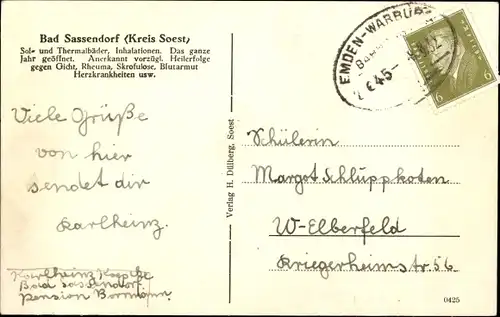 Bad Sassendorf (Kreis Soest)
Sol- und Thermalbäder, Inhalationen. Das ganze
Jahr geöffnet. Anerkannt vorzügl. Heilerfolge
gegen Gicht, Rheuma, Skrofulose, Blutarmut
Herzkrankheiten usw.
Viele Grüße
von hier
sendet dir
Karlheinz.
Karlheinz
Bad Sassendorf.
Pension Bormann.
Verlag H. Dülberg, Soest
EMDEN-WARBURG
BAHNPOST
6 6
Schülerin
Margot Schluppkoten
W-Elberfeld
Kriegerheimstr 56.
0425